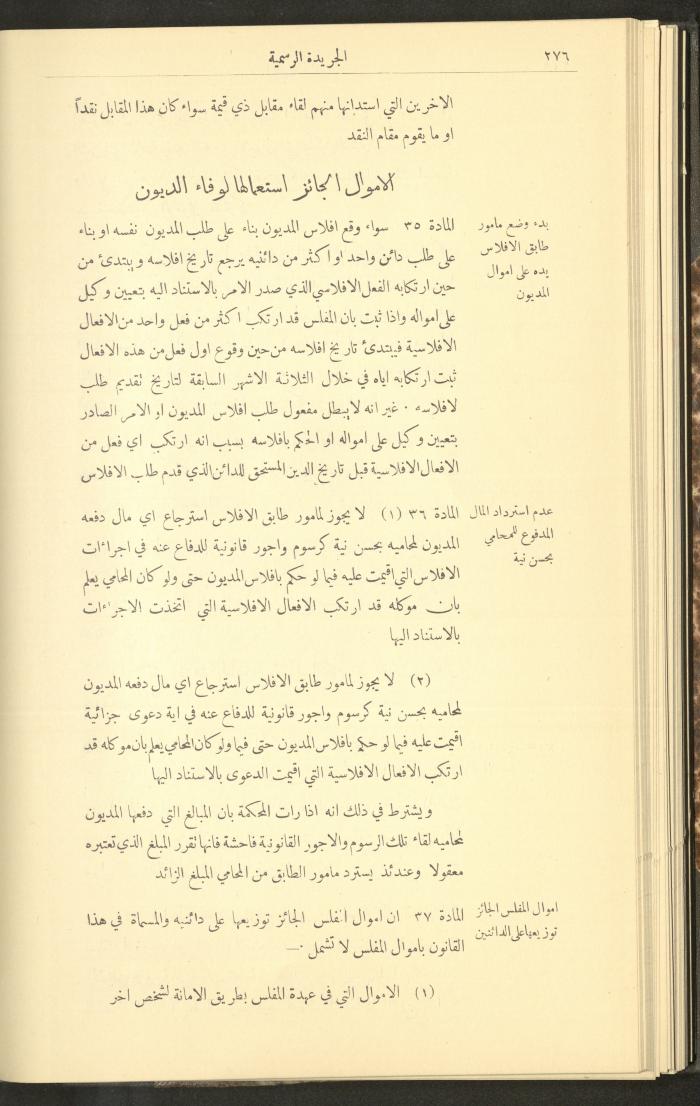 ٢٧٦
الجريدة الرسمية
الاخرين التي استدانها منهم لقاء مقابل ذي قيمة سواء كان هذا المقابل نقداً
او ما يقوم مقام النقد
الاموال الجائز استعمالها لوفاء الديون
بدء وضع مامور
طابق الافلاس
يده على اموال
المديون
المادة ٣٥ سواء وقع افلاس المديون بناء على طلب المديون نفسه او بناء
على طلب دائن واحد او اكثر من دائنيه يرجع تاريخ افلاسه ويبتدئ من
حين ارتكابه الفعل الافلاسي الذي صدر الامر بالاستناد اليه بتعيين وكيل
على امواله واذا ثبت بان المفلس قد ارتكب اكثر من فعل واحد من الافعال
الافلاسية فيبتدئ تاريخ افلاسه من حين وقوع اول فعل من هذه الافعال
ثبت ارتكابه اياه في خلال الثلاثة الاشهر السابقة لتاريخ تقديم طلب
لافلاسه ٠ غير انه لا يبطل مفعول طلب افلاس المديون او الامر الصادر
بتعيين وكيل على امواله او الحكم بافلاسه بسبب انه ارتكب اي فعل من
الافعال الافلاسية قبل تاريخ الدين المستحق للدائن الذي قدم طلب الافلاس
عدم استرداد المال
المدفوع للمحامي
بحسن نية
المادة ٣٦ (١) لا يجوز لمامور طابق الافلاس استرجاع اي مال دفعه
المديون لمحاميه بحسن نية كرسوم واجور قانونية للدفاع عنه في اجراءات
الافلاس التي اقيمت عليه فيما لو حكم بافلاس المديون حتى ولو كان المحامي يعلم
بان موكله قد ارتكب الافعال الافلاسية التي اتخذت الاجراءات
بالاستناد اليها
(٢) لا يجوز لمامور طابق الافلاس استرجاع اي مال دفعه المديون
لمحاميه بحسن نية كرسوم واجور قانونية للدفاع عنه في اية دعوى جزائية
اقيمت عليه فيما لو حكم بافلاس المديون حتى فيما ولو كان المحامي يعلم بان موكله قد
ارتكب الافعال الافلاسية التي اقيمت الدعوى بالاستناد اليها
ويشترط في ذلك انه اذا رات المحكمة بان المبالغ التي دفعها المديون
لمحاميه لقاء تلك الرسوم والاجور القانونية فاحشة فانها تقرر المبلغ الذي تعتبره
معقولا وعندئذ يسترد مامور الطابق من المحامي المبلغ الزائد
اموال المفلس الجائز
توزيعها على الدائنين
المادة ٣٧ ان اموال المفلس الجائز توزيعها على دائنيه والمسماة في هذا
القانون باموال المفلس لا تشمل ٠—
(١) الاموال التي في عهدة المفلس بطريق الامانة لشخص اخر